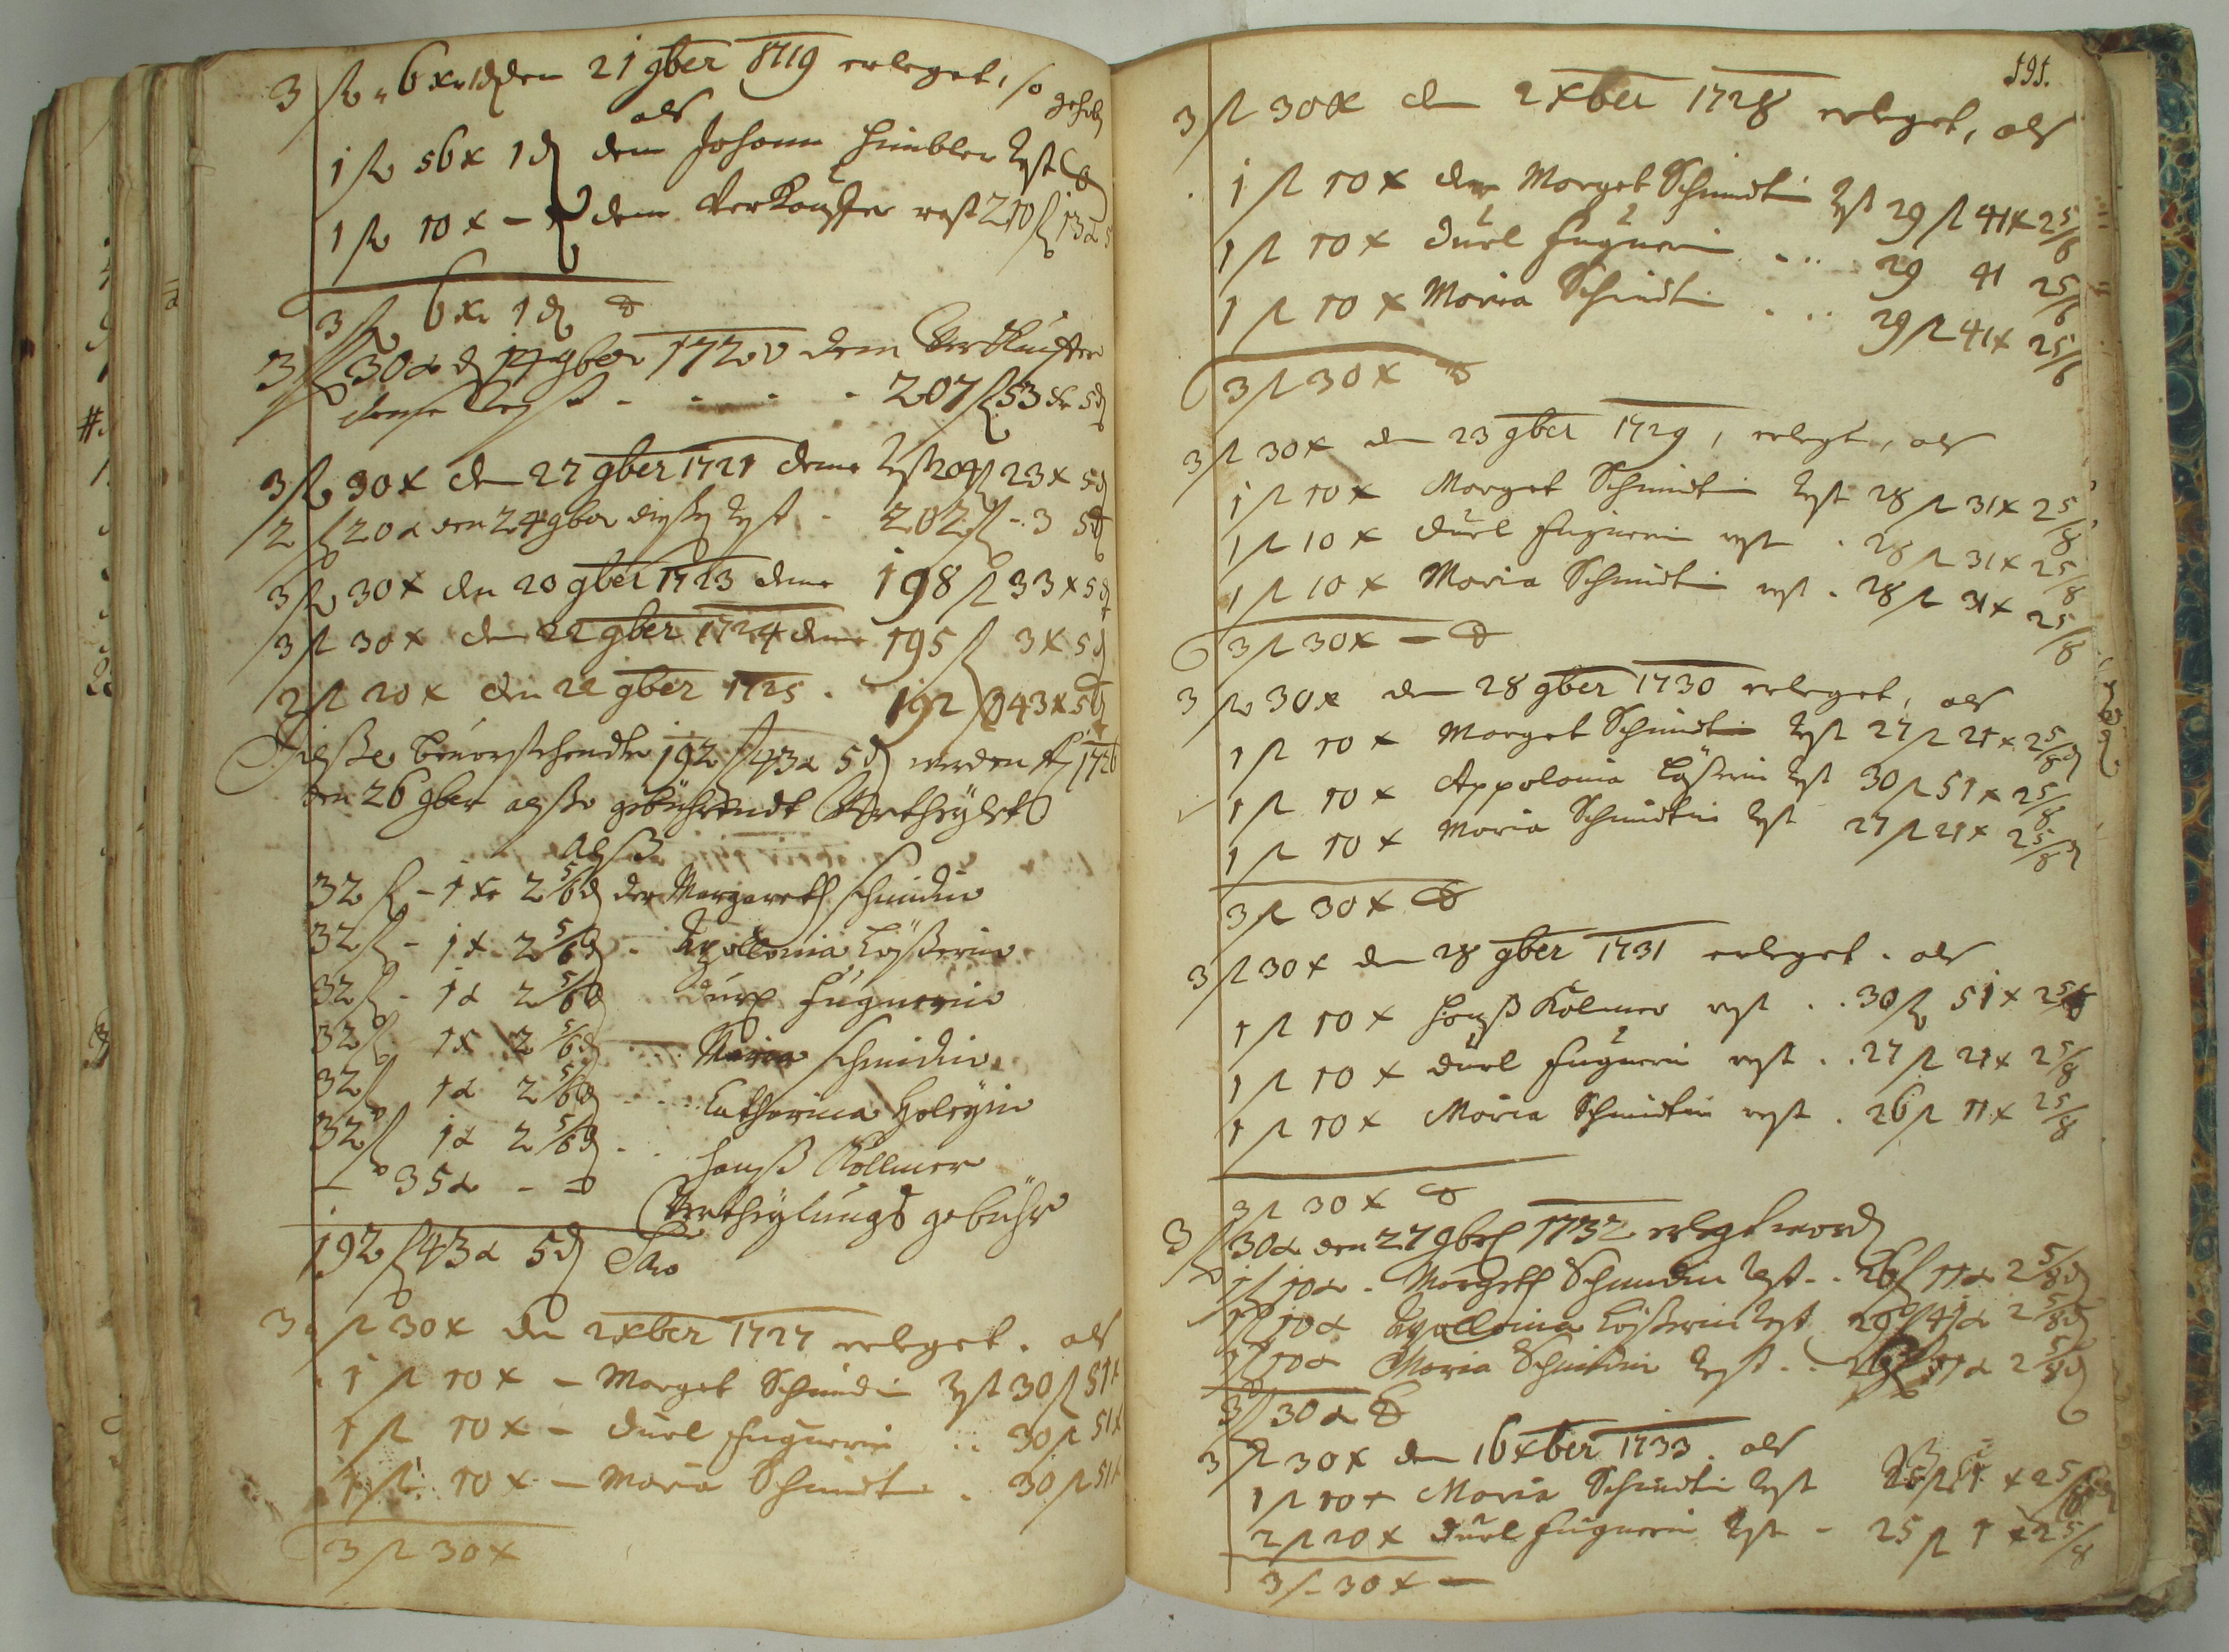 3 fl 6 xr 1 d den 21 9ber 1719 erleget, so
als
1 fl 56 x 1 d dem Johann Himbler rest
1 fl 10 x – dem Verkauffer rest 210 fl 13 x 5
3 fl 6 xr 1 d
3 fl 30 x d 14 9ber 1720 dem Verkauffer
deme rest - - - - 207 fl 53 xr 5 d
3 fl 30 x den 27 9ber 1721 deme rest 204 fl 23 x 5 d
2 fl 20 x den 24 9ber dießer rest - 202 fl - 3 5 d
3 fl 30 x den 20 9ber 1723 deme 198 fl 33 x 5 d
3 fl 30 x den 22 9ber 1724 deme 195 fl 3 x 5 d
2 fl 20 x den 22 9ber 1725 . 192 fl 43 x 5 d
Dieße bevorstehendte 192 fl 43 x 5 d werden 1726
den 26 9ber alßo gebührendt Vertheylet
alß
32 fl - 1 xr 2 5/6 d der Margareth Schmidin
32 fl - 1 x 2 5/6 d - Apollonia Lößerin
32 fl - 1 x 2 5/6 d Durl Fugnerin
32 fl 1 x 2 5/6 d Maria Schmidin
32 fl 1 x 2 5/6 d Catharina
32 fl 1 x 2 5/6 d - Hanß Kollmer
– 35 x – Vertheylungs gebühr
192 fl 43 x 5 d
3 fl 30 x den 2 xber 1727 erleget . als
1 fl 10 x – Marget Schmidin rest 30 fl 51 x
1 fl 10 x – Durl Fugnerin .. 30 fl 51 x
1 fl 10 x – Maria Schmidtin . 30 fl 51 x
3 fl 30 x
191.
3 fl 30 x den 2 xber 1728 erleget, als
1 fl 10 x der Marget Schmidtin rest 29 fl 41 x 2 5/6
1 fl 10 x Durl Fugnerin . .. 29 41 2 5/6
1 fl 10 x Maria Schmidtin . .. 29 fl 41 x 2 5/6
3 fl 30 x
3 fl 30 x den 23 9ber 1729, erlegt, als
1 fl 10 x Marget Schmidtin rest 28 fl 31 x 2 5/8
1 fl 10 x Durl Fugnerin rest . 28 fl 31 x 2 5/8
1 fl 10 x Maria Schmidtin rest . 28 fl 31 x 2 5/8
3 fl 30 x –
3 fl 30 x den 28 9ber 1730 erleget, als
1 fl 10 x Marget Schmidtin rest 27 fl 21 x 2 5/8 d
1 fl 10 x Appolonia Lößerin rest 30 fl 51 x 2 5/8
1 fl 10 x Maria Schmidtin rest 27 fl 21 x 2 5/8 d
3 fl 30 x
3 fl 30 x den 28 9ber 1731 erleget . als
1 fl 10 x Hanß Kolmer rest . . 30 fl 51 x 2 5/8
1 fl 10 x Durl Fugnerin rest . . 27 fl 21 x 2 5/8
1 fl 10 x Maria Schmidtin rest . 26 fl 11 x 2 5/8
3 fl 30 x
3 fl 30 x den 27 9ber 1732 erlegt word
1 fl 10 x . Margeth Schmidin rest . . 26 fl 11 x 2 5/8 d
1 fl 10 x Apollonia Lößerin rest 29 fl 41 x 2 5/8 d
1 fl 10 x Maria Schmidin rest . . 11 x 2 5/8 d
3 fl 30 x
3 fl 30 x den 16 xber 1733 . als
1 fl 10 x Maria Schmidtin rest
2 fl 20 x Durl Fugnerin rest – 25 fl 1 x 2 5/8
3 fl 30 x –